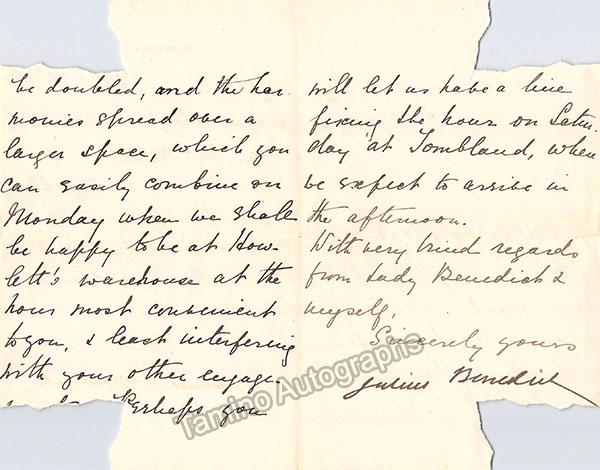 be doubled, and the har-
monies spread over a
larger space, which you
can easily combine on
Monday when we shall
be happy to be at How-
lett's warehouse at the
hour most convenient
to you, & least interfering
with your other engage-
Perhaps you
will let us have a line
fixing the hour on Satur-
day at Tombland, where
we expect to arrive in
the afternoon.
With very kind regards
from Lady Benedict &
myself,
Sincerely yours
Julius Benedict
Tamino Autographs